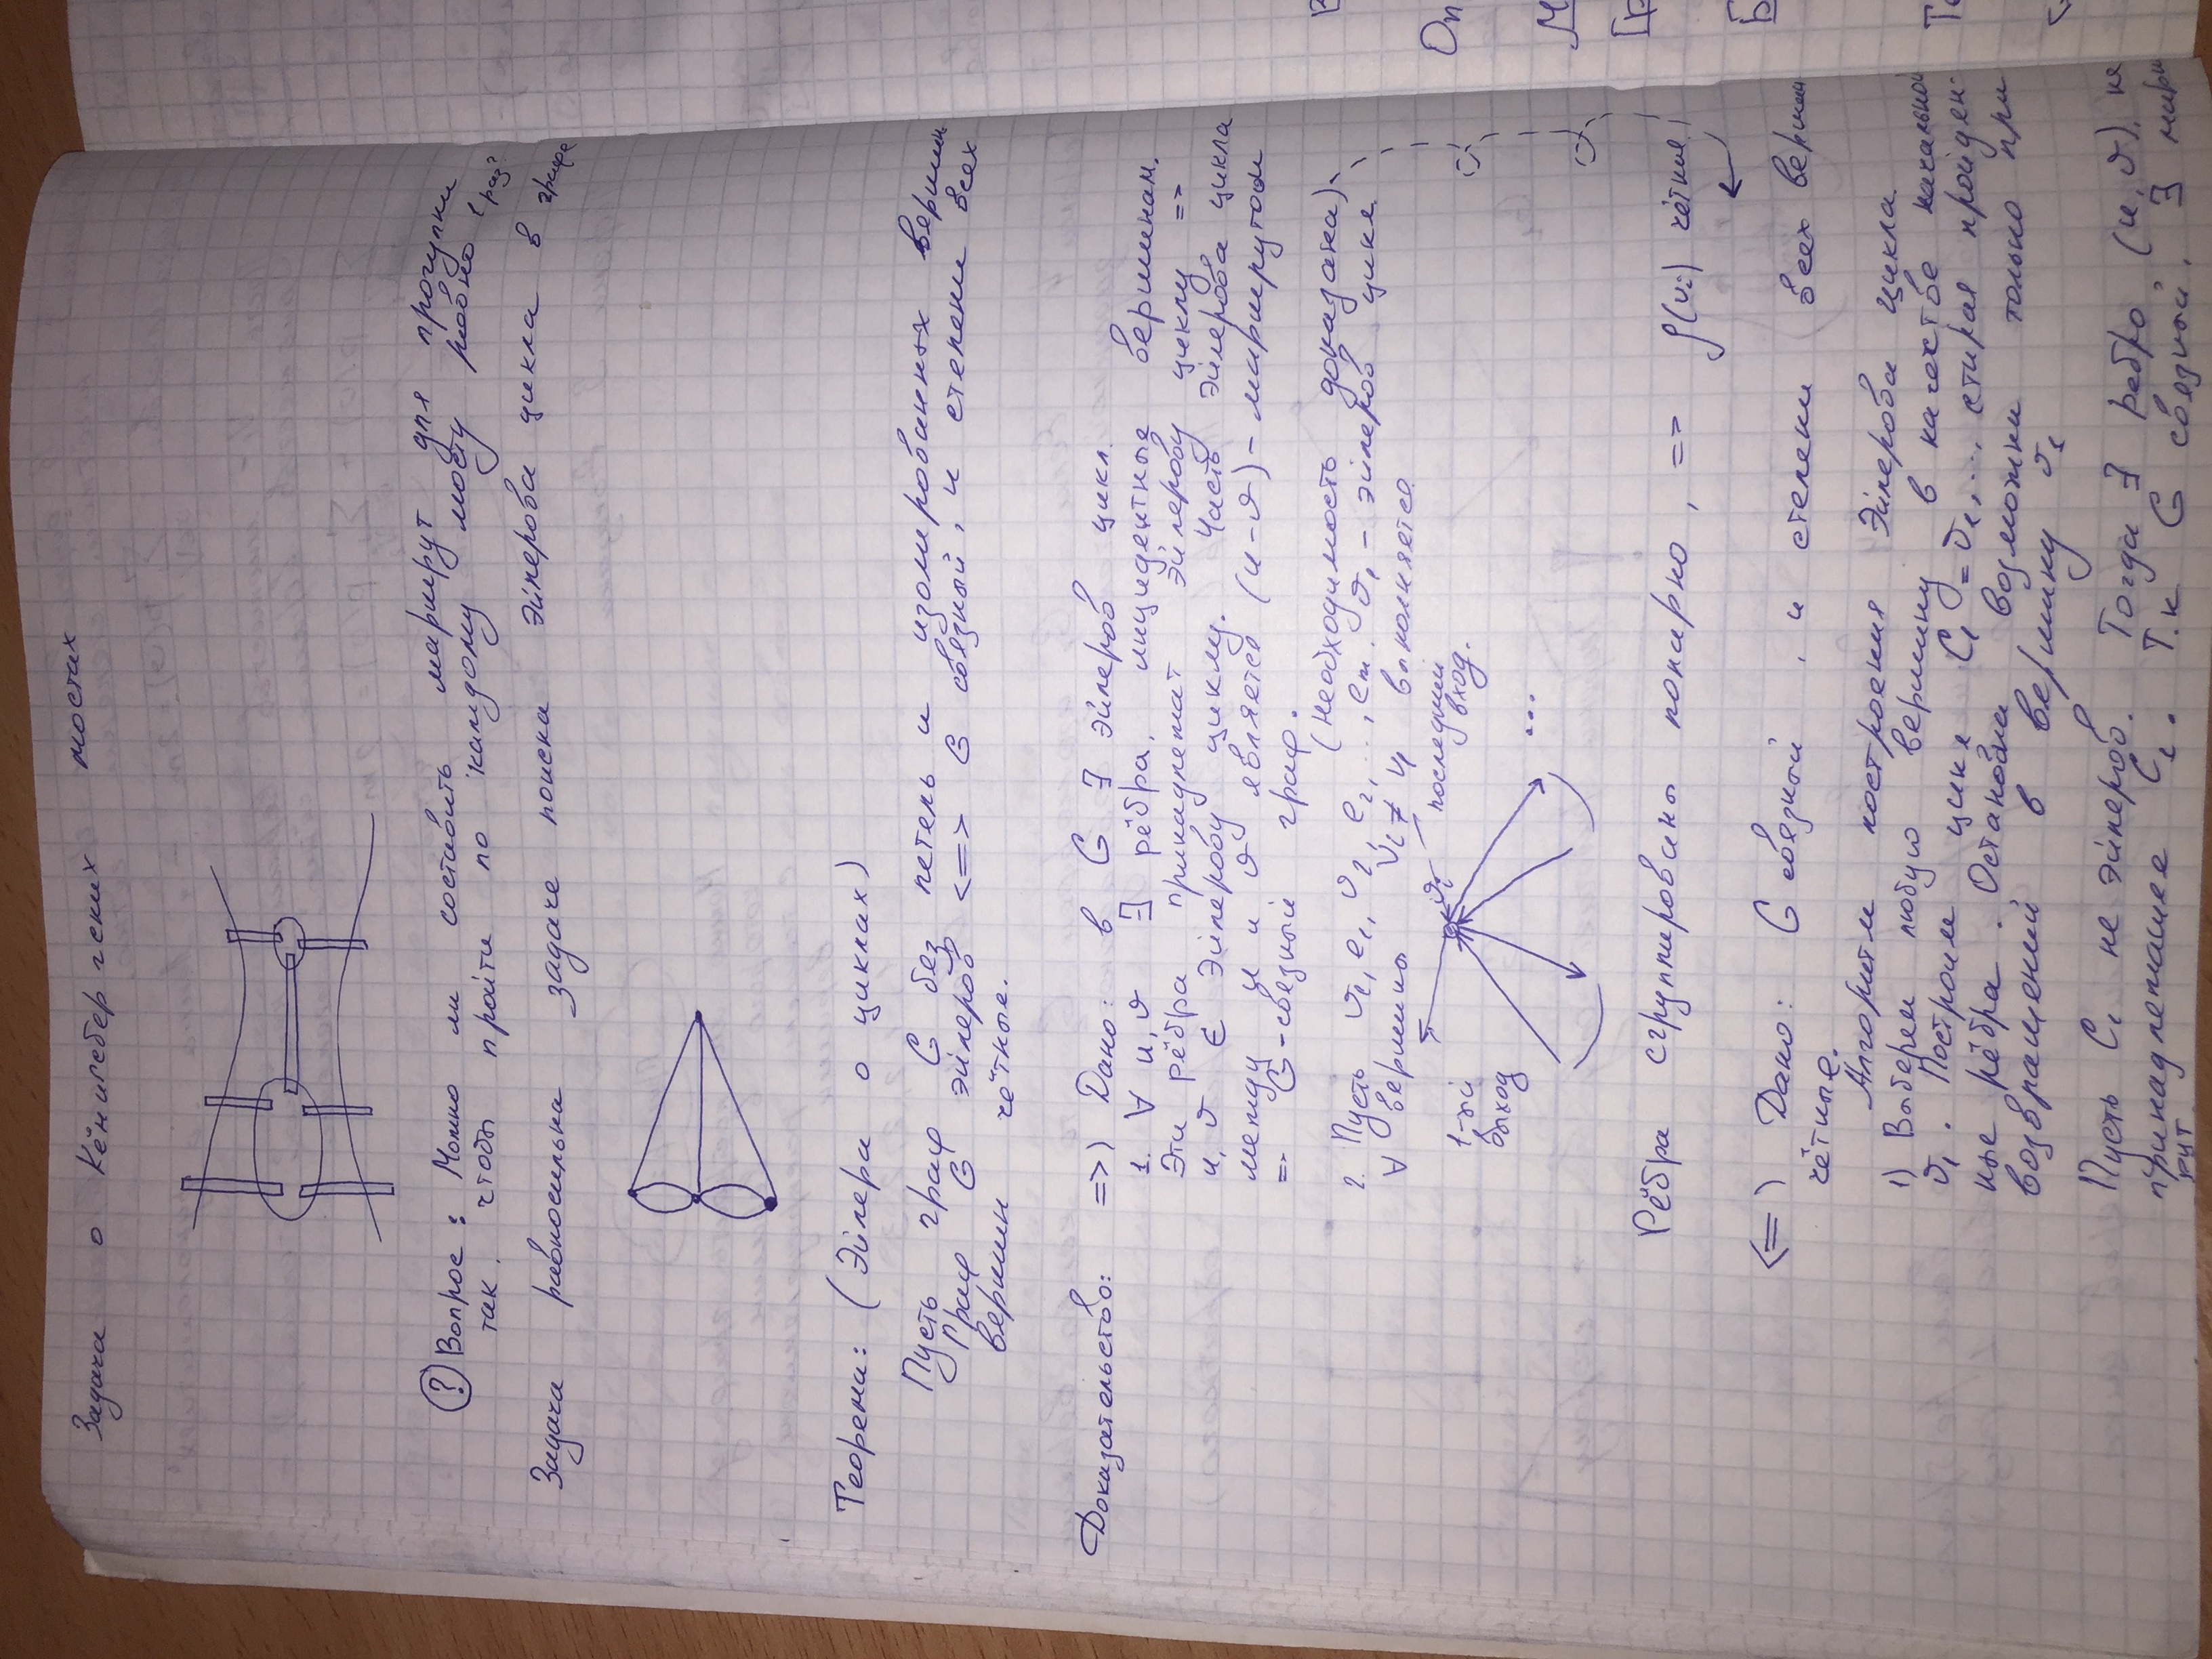 Задача о Кёнигсбергских мостах
? Вопрос: Можно ли составить маршрут для прогулки
так, чтобы пройти по каждому мосту ровно 1 раз?
Задача равносильна задаче поиска эйлерова цикла в графе
Теорема: (Эйлера о циклах)
Пусть граф G без петель и изолированных вершин
Граф G эйлеров <=> G связный, и степени всех
вершин чётные.
Доказательство: =>) Дано: в G ∃ эйлеров цикл.
1. ∀ u, v ∃ рёбра, инцидентные вершинам.
Эти рёбра принадлежат эйлерову циклу =>
u, v ∈ эйлерову циклу. Часть эйлерова цикла
между u и v является (u-v)-маршрутом
=> G - связный граф.
(необходимость доказана)
2. Пусть v₁, e₁, v₂, e₂, ..., em, v₁ - эйлеров цикл
∀ вершины vᵢ ≠ v₁ выполняется
vᵢ последний вход.
1-ый выход
...
Рёбра сгруппированы попарно, => ρ(vᵢ) чётные)
<=) Дано: G связный, и степени всех вершин
чётные.
Алгоритм построения Эйлерова цикла
1) Выберем любую вершину в качестве начальной
v₁. Построим цикл C₁ = v₁, ..., стирая пройден-
ные рёбра. Остановка возможна только при
возвращении в вершину v₁
Пусть C₁ не эйлеров. Тогда ∃ ребро (u, v), не
принадлежащее C₁. Т.к G связный, ∃ марш
рут